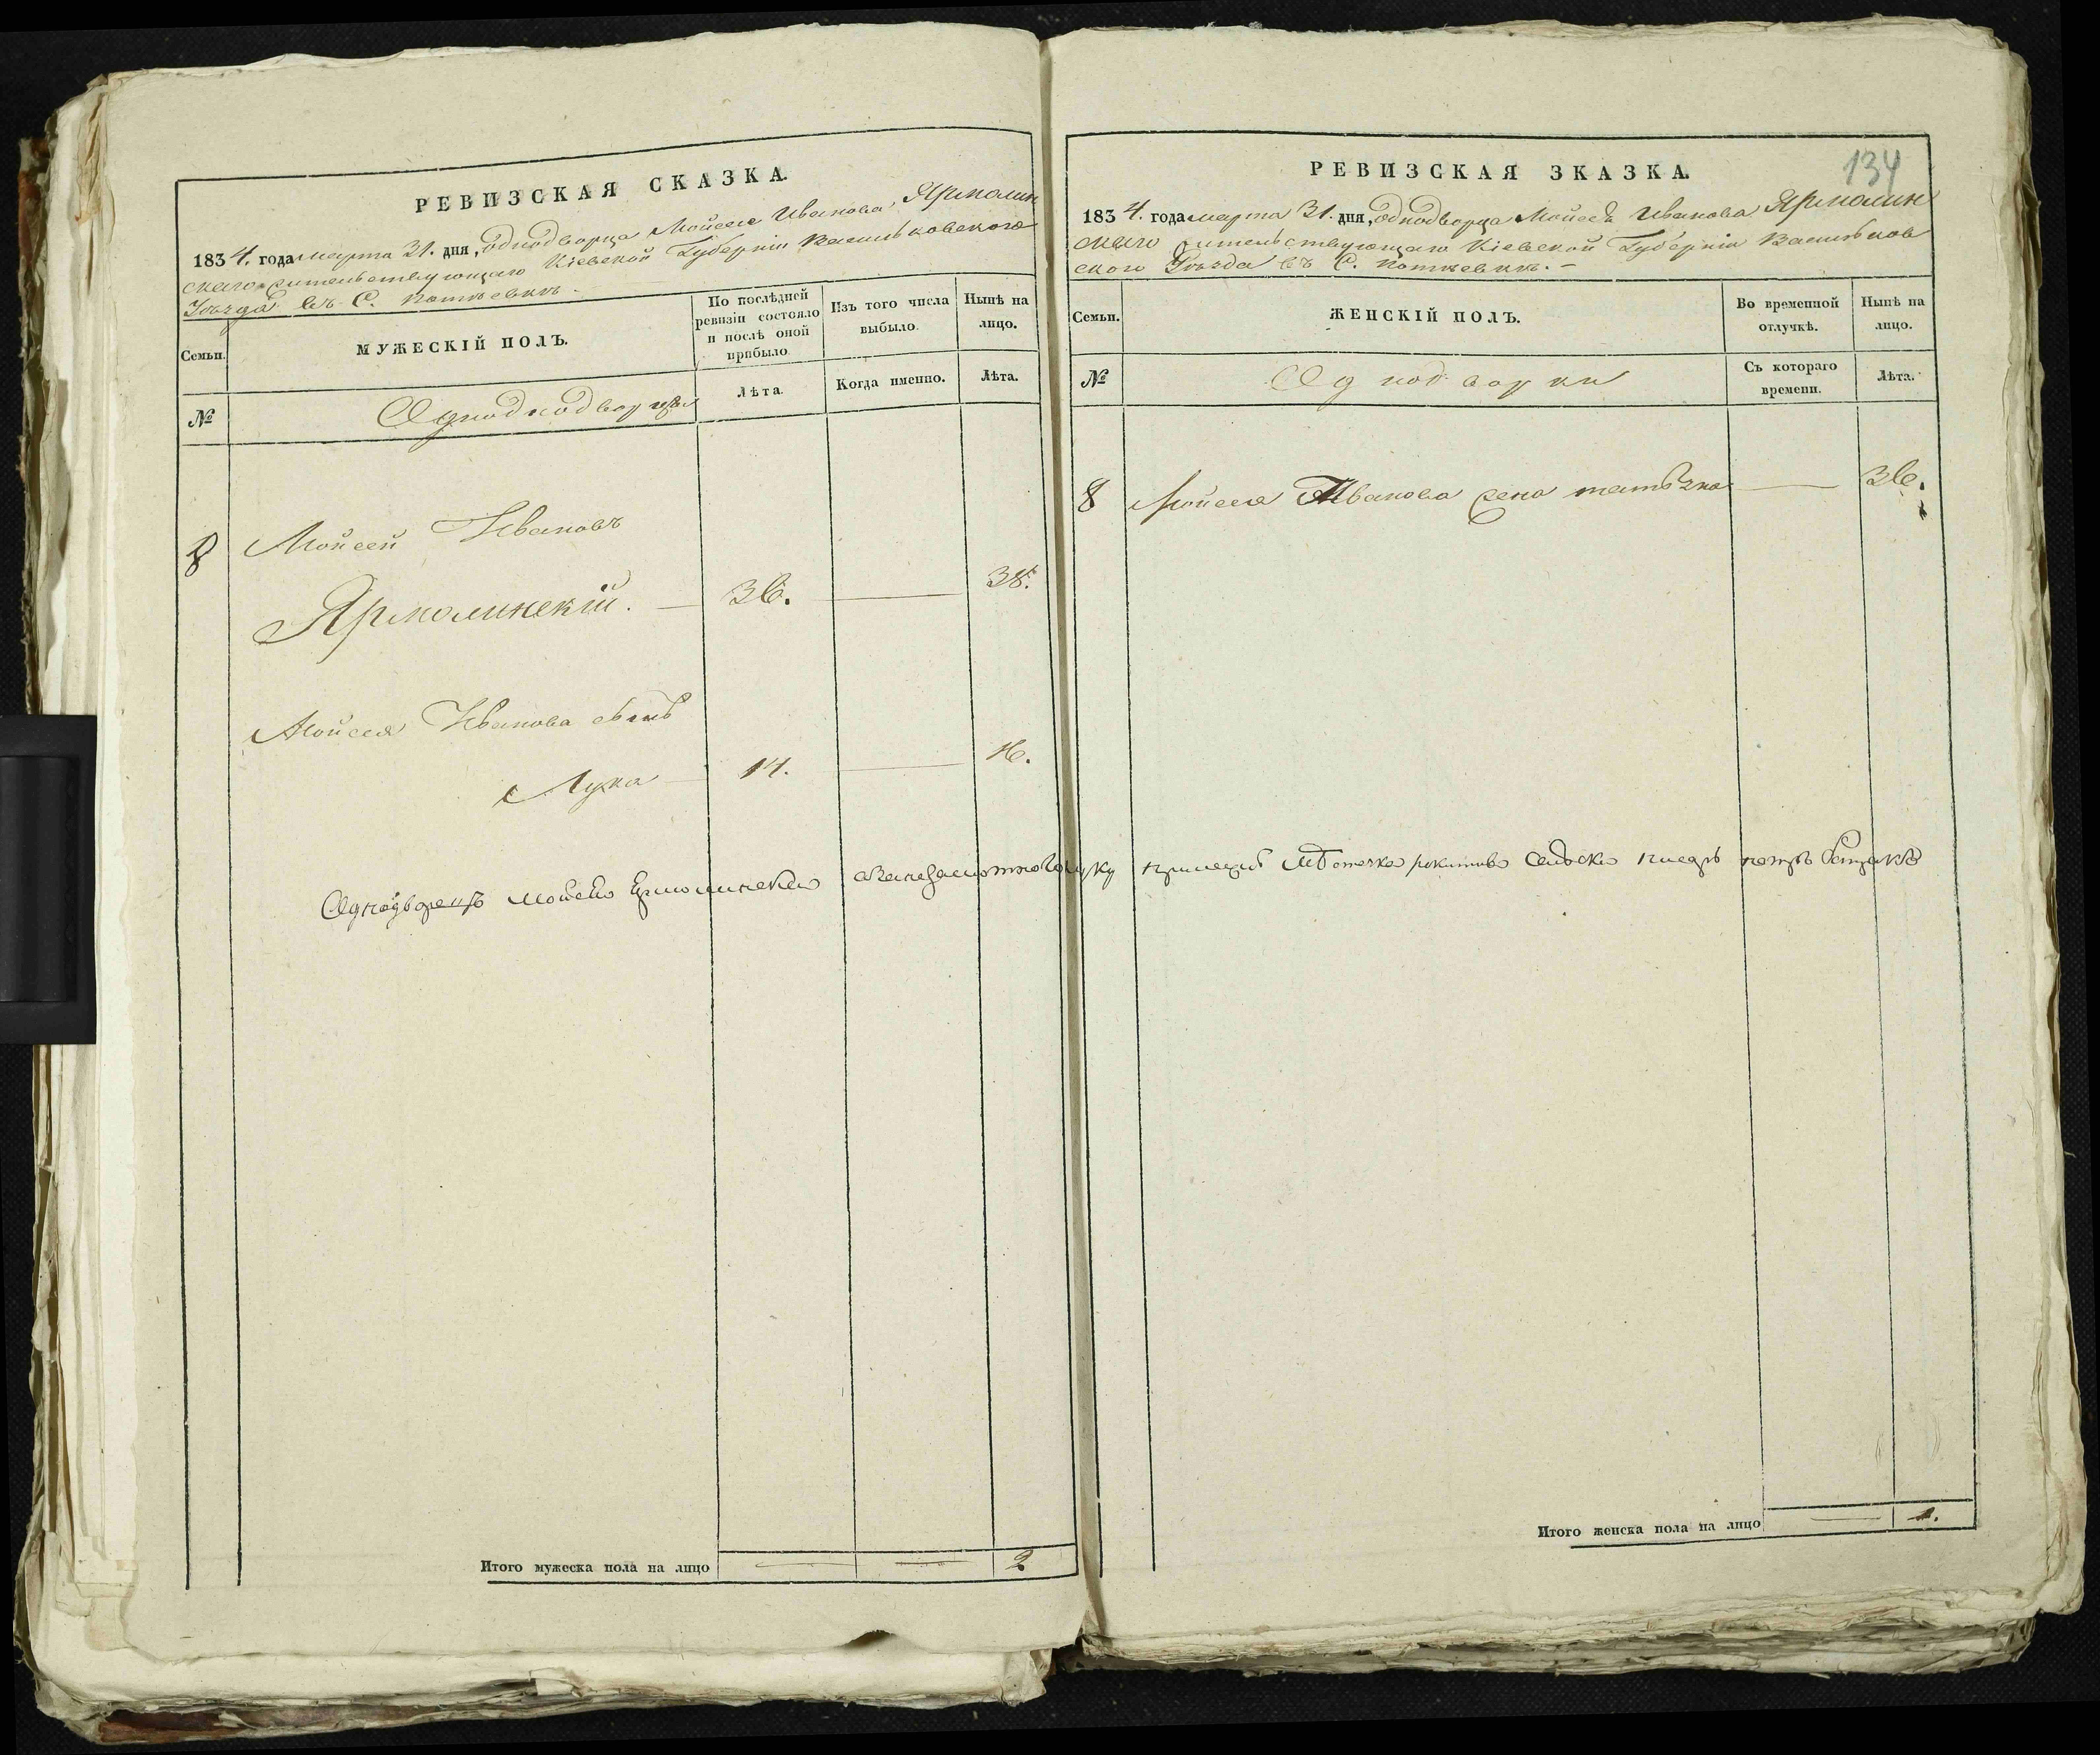 РЕВИЗСКАЯ СКАЗКА.
1834. года марта 31. дня, однодворца Мойсея Иванова Ярмолин
скаго жительствующаго Кіевской Губерніи Васильковскаго
Уѣзда въ С.
Семьи.
МУЖЕСКІЙ ПОЛЪ.
По послѣдней
ревизіи состояло
и послѣ оной
прибыло.
Изъ того числа
выбыло.
Нынѣ на
лицо.
№
Лѣта.
Когда именно.
Лѣта.
8 Мойсей Ивановъ
Ярмолинскій. 36. 38.
Мойсея Иванова сынъ
Лука 14. 16.
Итого мужеска пола на лицо 2
134
РЕВИЗСКАЯ ЗКАЗКА.
1834. года марта 31. дня, однодворца Мойсея Иванова Ярмолин
скаго жительствующаго Кіевской Губерніи Васильков
скаго Уѣзда въ С.
Семьи.
ЖЕНСКІЙ ПОЛЪ.
Во временной
отлучкѣ.
Нынѣ на
лицо.
№
Однодворки
Съ котораго
времени.
Лѣта.
8 Мойсея Иванова жена 36.
Однодворецъ Мойсей
Итого женска пола на лицо 1.